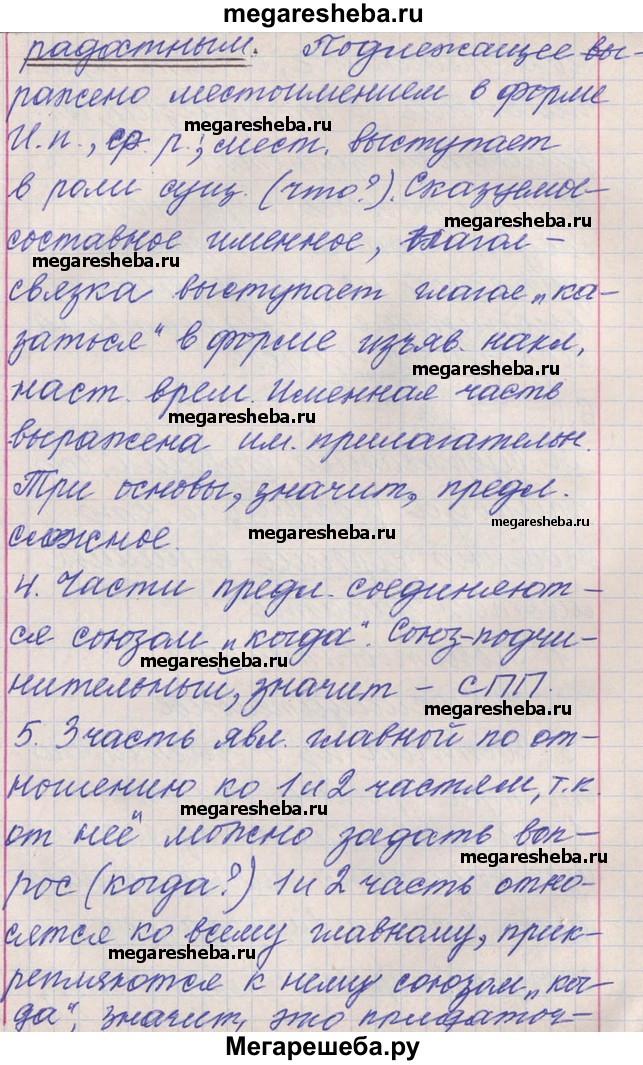 megaresheba.ru
радостным. Подлежащее вы-
ражено местоимением в форме
И.п., ср. р.; мест. выступает
megaresheba.ru
в роли сущ. (что?). Сказуемое-
megaresheba.ru
составное именное, глагол-
megaresheba.ru
связка выступает глагол „ка-
заться“ в форме изъяв. накл,
megaresheba.ru
наст. врем. Именная часть
megaresheba.ru
выражена им. прилагательн.
Три основы, значит, предл.
megaresheba.ru
сложное.
megaresheba.ru
4. Части предл. соединяют-
ся союзом „когда“. Союз-подчи-
megaresheba.ru
нительный, значит - СПП.
megaresheba.ru
5. 3 часть явл. главной по от-
ношению ко 1 и 2 частям, т.к.
megaresheba.ru
от неё можно задать воп-
megaresheba.ru
рос (когда?) 1 и 2 часть отно-
сятся ко всему главному, прик-
megaresheba.ru
репляются к нему союзом „ког-
да“, значит, это придаточ-
Мегарешеба.ру